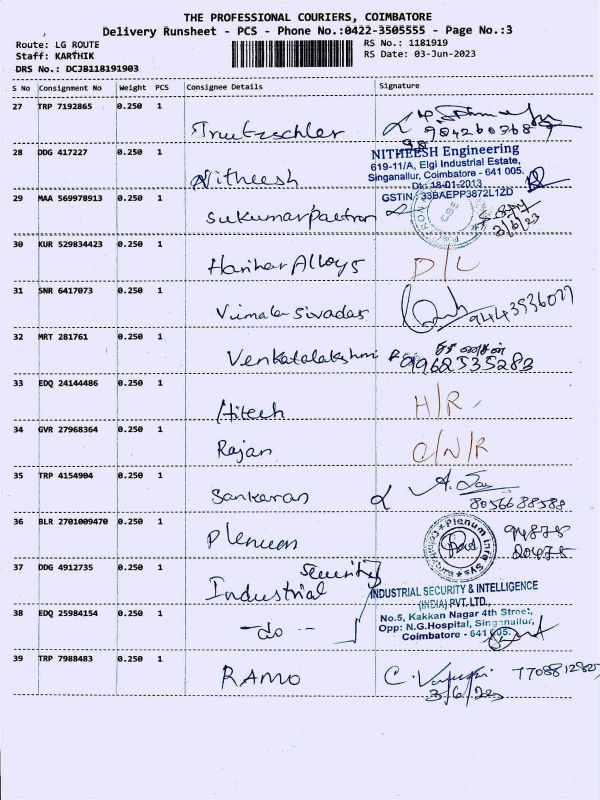 THE PROFESSIONAL COURIERS, COIMBATORE
Delivery Runsheet - PCS - Phone No.:0422-3505555 - Page No.:3
Route: LG ROUTE RS No.: 1181919
Staff: KARTHIK RS Date: 03-Jun-2023
DRS No.: DCJB118191903
S No Consignment No Weight PCS Consignee Details Signature
27 TRP 7192865 0.250 1 Truetzschler
28 DDG 417227 0.250 1 Nitheesh
NITHEESH Engineering
619-11/A, Elgi Industrial Estate,
Singanallur, Coimbatore - 641 005.
Dt: 18-01-2013
GSTIN : 33BAEPP3872L1ZD
29 MAA 569978913 0.250 1 Sukumar Paetron
3/6/23
30 KUR 529834423 0.250 1 Harihar Alloys D/L
31 SNR 6417073 0.250 1 Vimala Sivadas
32 MRT 281761 0.250 1 Venkatalakshmi 9962535283
33 EDQ 24144486 0.250 1 Hitech H/R
34 GVR 27968364 0.250 1 Rajan C/N/R
35 TRP 4154904 0.250 1 Sankaran 8056688588
36 BLR 2701009470 0.250 1 Plenum 94878
20478
Plenum Info Sys
37 DDG 4912735 0.250 1 Industrial Security
INDUSTRIAL SECURITY & INTELLIGENCE
(INDIA) PVT. LTD.,
38 EDQ 25984154 0.250 1 - do -
No.5, Kakkan Nagar 4th Street,
Opp: N.G.Hospital, Singanallur,
Coimbatore - 641 005.
39 TRP 7988483 0.250 1 RAMO
3/6/23